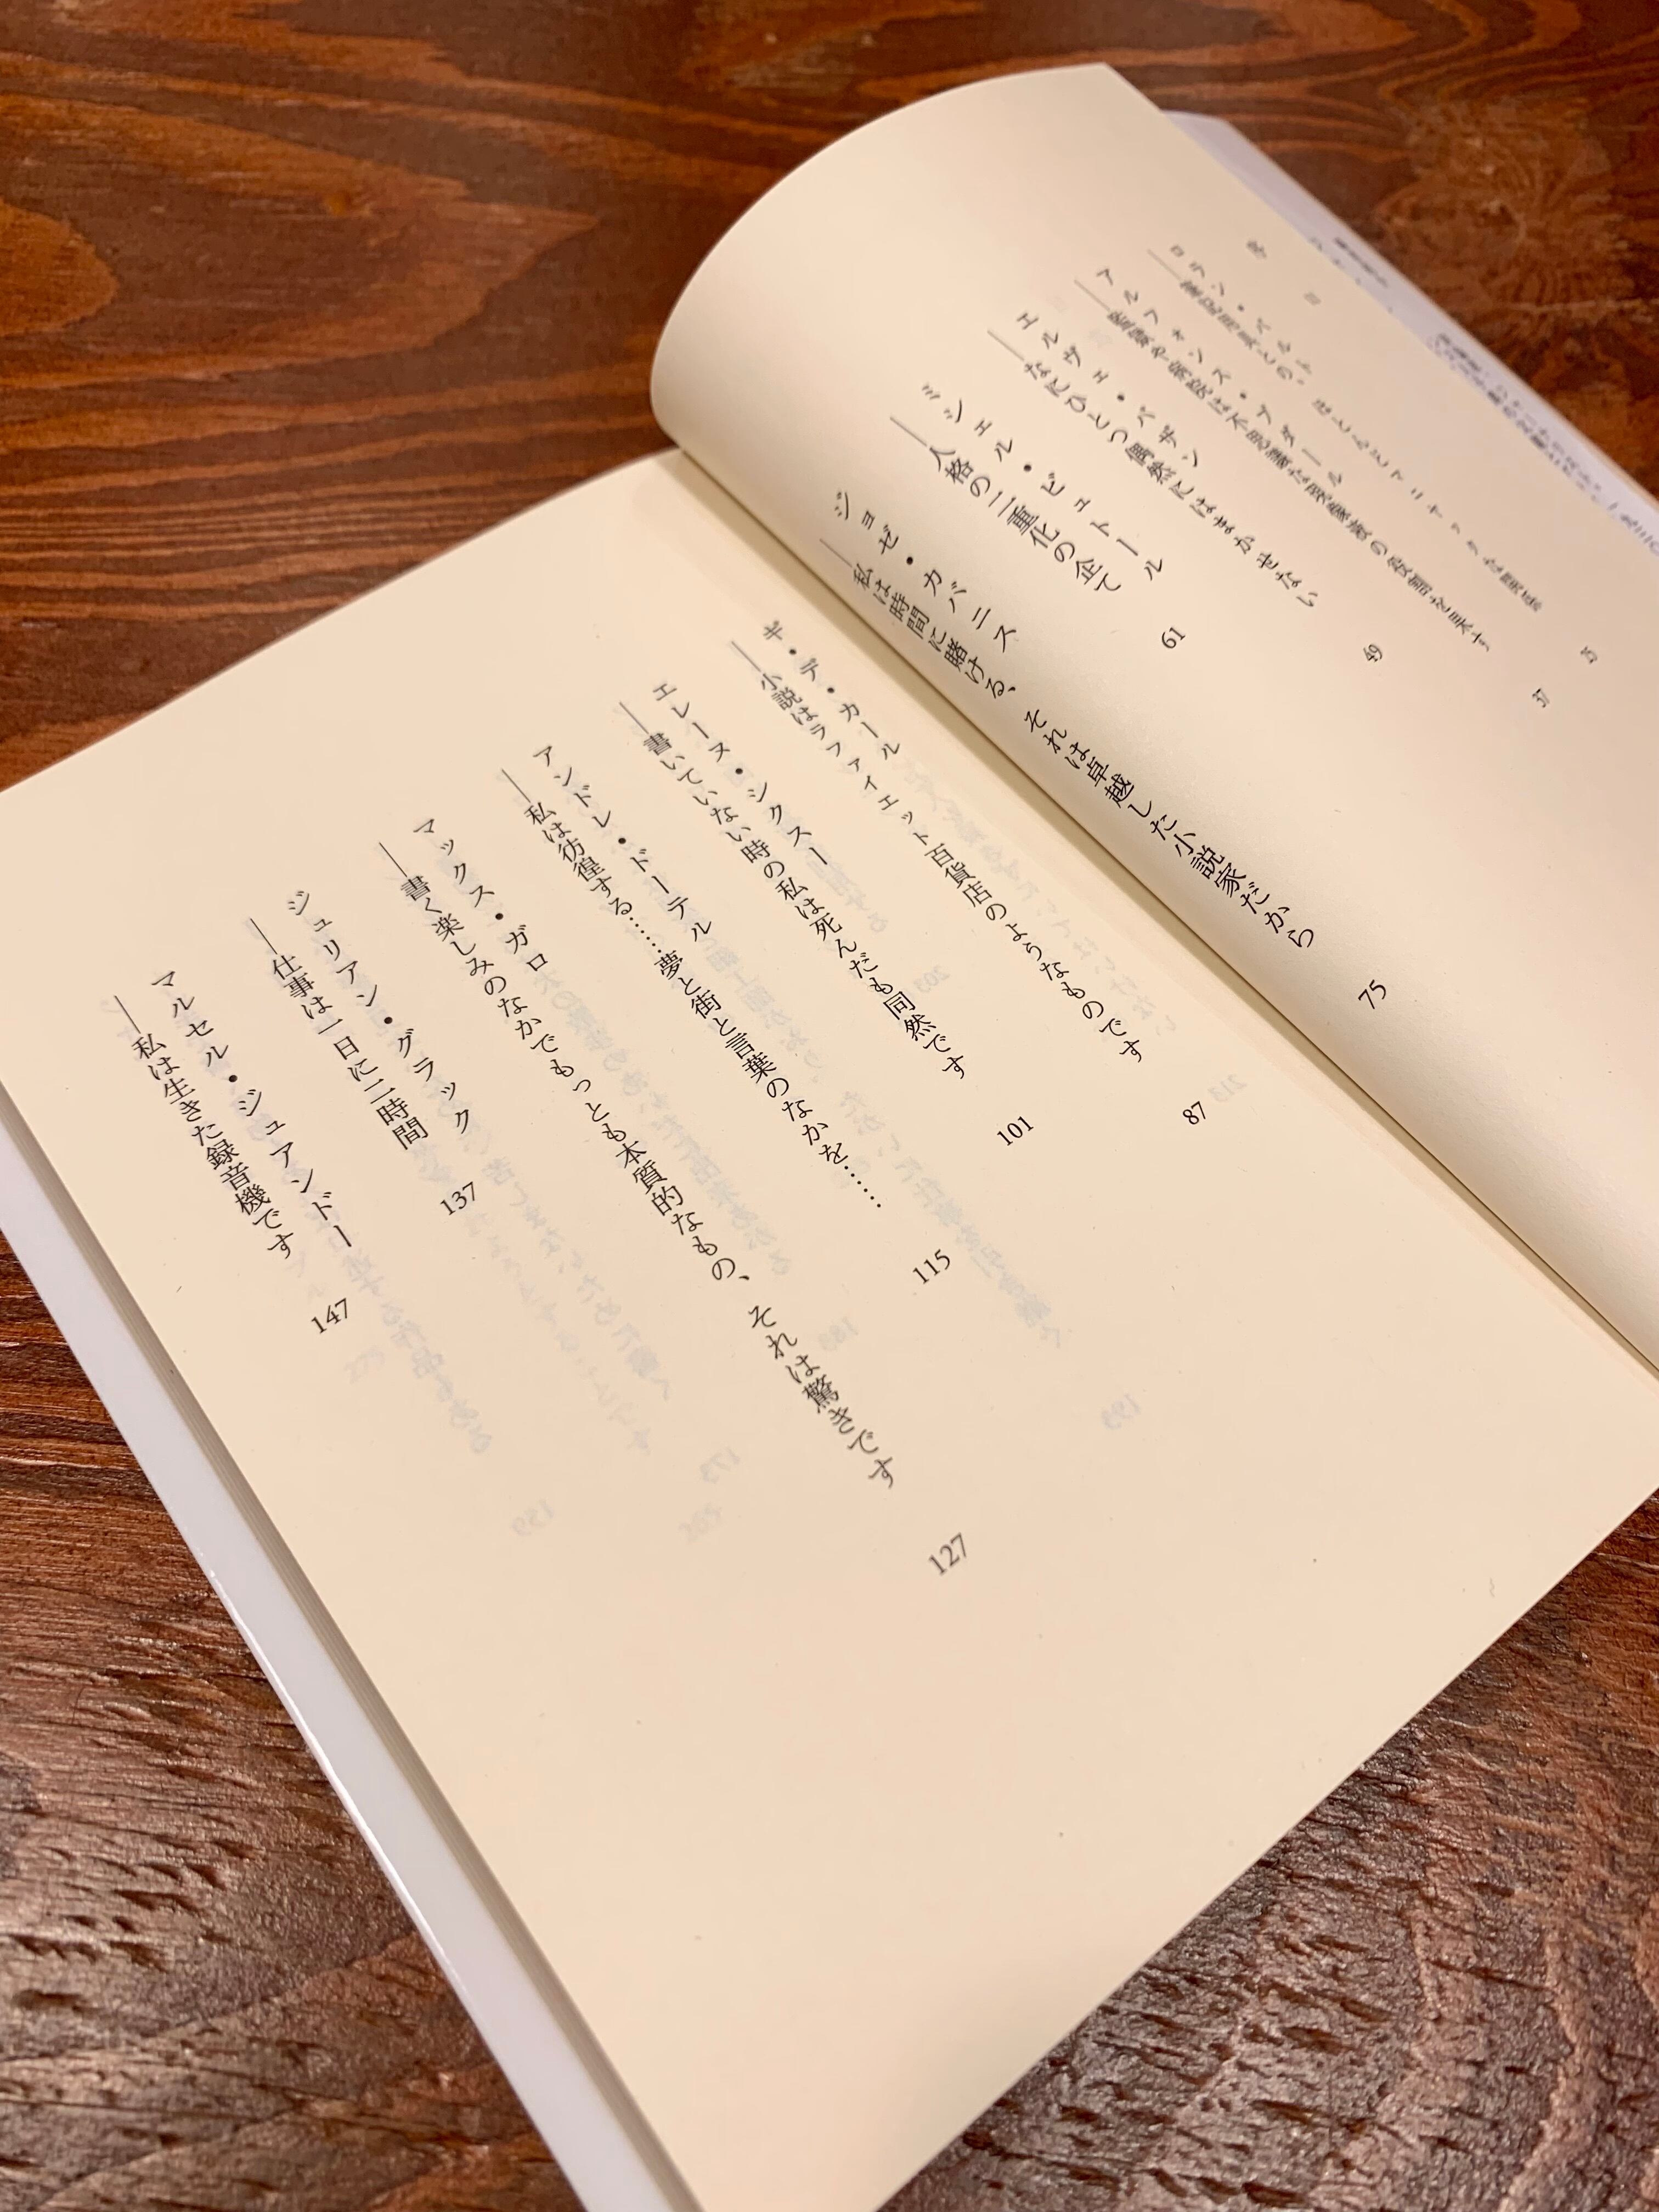 序
ロラン・バルト
——筆記用具との、ほとんどマニヤックな関係
25
アルフォンス・ブダール
——監獄や病院は不思議な現像液の役割を果す
37
エルヴェ・バザン
——なにひとつ偶然にはまかせない
49
ミシェル・ビュトール
——人格の二重化の企て
61
ジョゼ・カバニス
——私は時間に賭ける、それは卓越した小説家だから
75
ギ・デ・カール
——小説はラファイエット百貨店のようなものです
87
エレーヌ・シクスー
——書いていない時の私は死んだも同然です
101
アンドレ・ドーテル
——私は彷徨する……夢と街と言葉のなかを……
115
マックス・ガロ
——書く楽しみのなかでもっとも本質的なもの、それは驚きです
127
ジュリアン・グラック
——仕事は一日に二時間
137
マルセル・ジュアンドー
——私は生きた録音機です
147